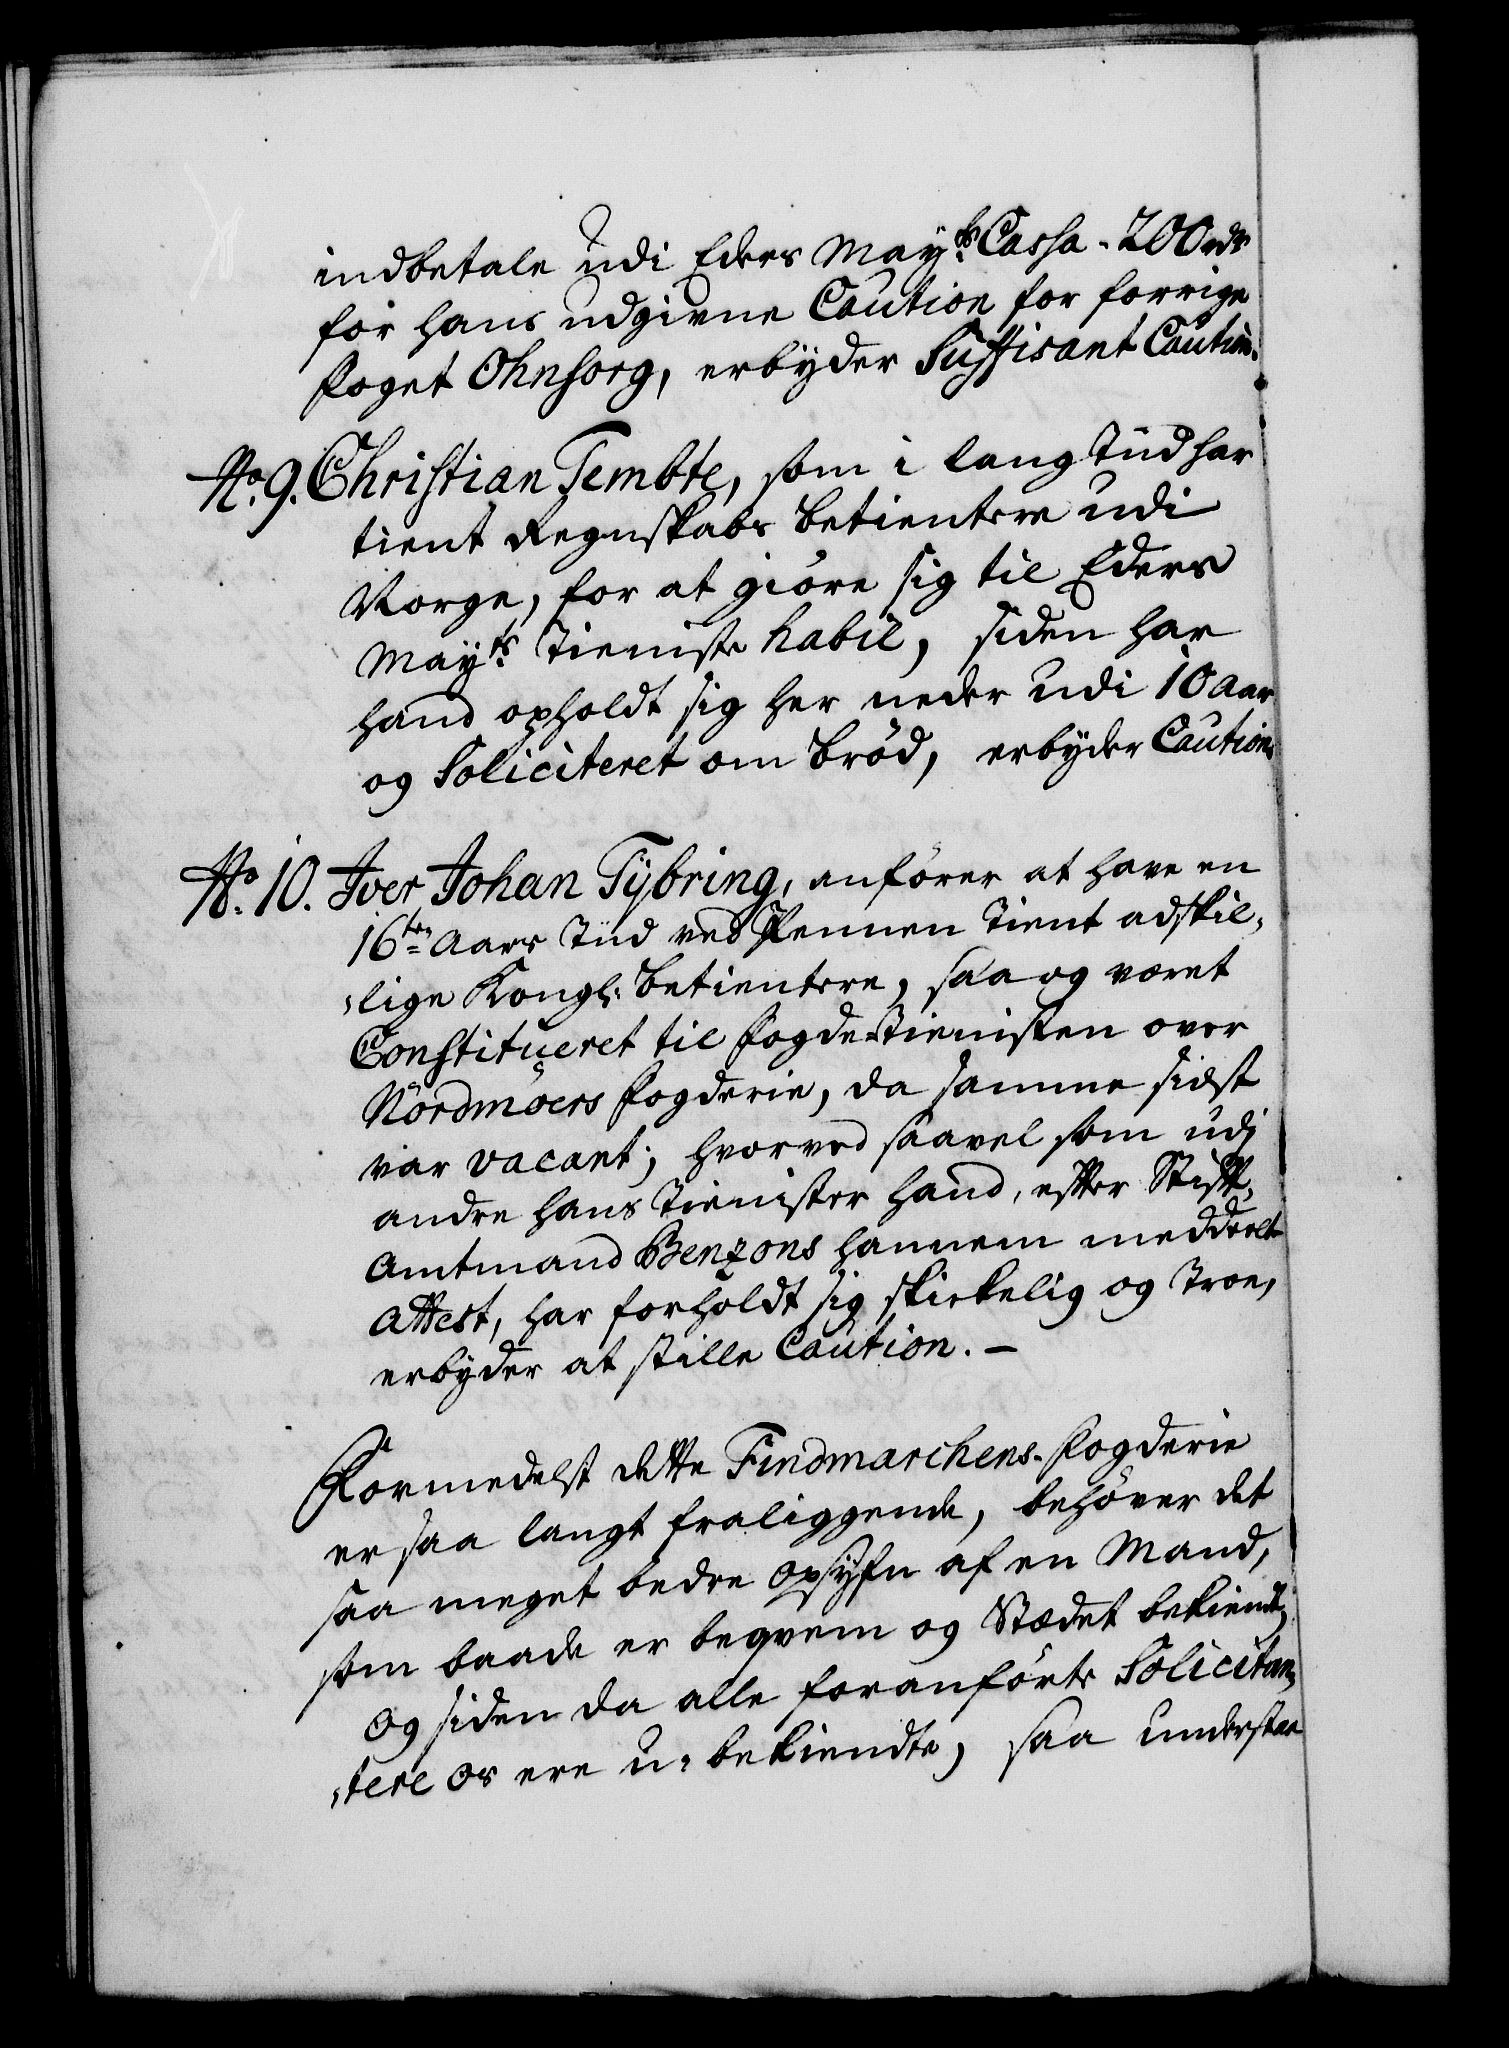 indbetale udi Eders Mayts Cassa 200 rdr
for hans udgivne Caution for forrige
foget Ohnsorg, erbyder Suffisant Caution.
No. 9. Christian Tembte, som i lang Tiid har
tient Regnskabs betientere udi
Norge, for at giöre sig til Eders
Mayts Tieniste habil, siden har
hand opholdt sig her neder udi 10 Aar
og Soliciteret om bröd, erbyder Caution.
No. 10. Iver Johan Tÿbring, anförer at have en
16ten Aars Tiid ved Pennen tient adskil-
lige Kongl: betientere, saa og været
Constitueret til fogde-Tienisten over
Nordmöers fogderie, da samme sidst
var vacant; hvorved saavel som udj
andre hans Tienister hand, efter Stift-
Amtmand Benzons hannem meddeelte
Attest, har forholdt sig skickelig og troe,
erbyder at stille Caution. –
Formedelst dette Findmarchens fogderie
er saa langt fraliggende, behöver det
saa meget bedre opsyn af en Mand,
som baade er beqvem og Stædet bekiendt,
og siden da alle foranförte Solicitan-
tere os ere u-bekiendte, saa understaae